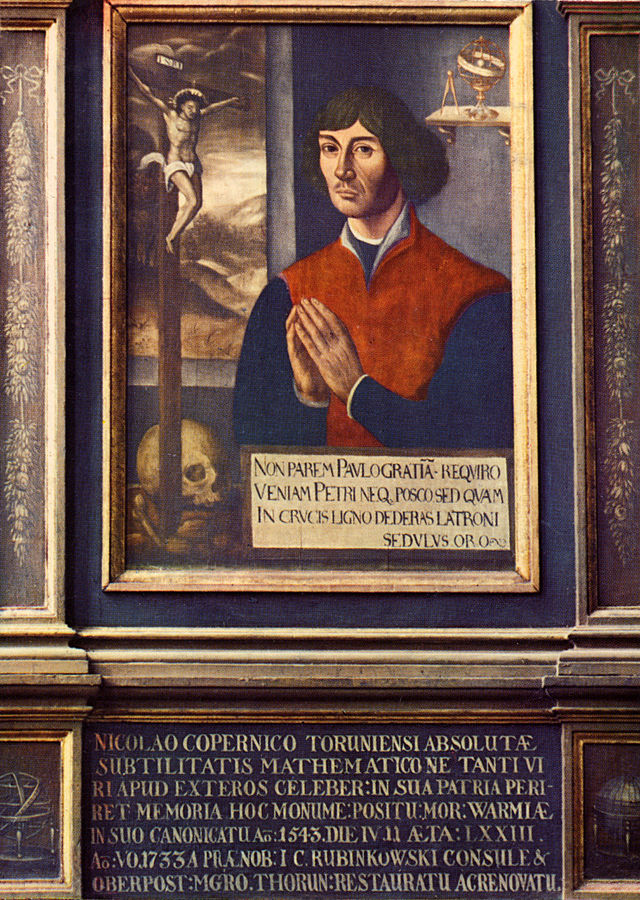 INRI
NON PAREM PAVLO GRATIÃ REQVIRO
VENIAM PETRI NEQ. POSCO SED QVAM
IN CRVCIS LIGNO DEDERAS LATRONI
SEDVLVS ORO
NICOLAO COPERNICO TORUNIENSI ABSOLUTÆ
SUBTILITATIS MATHEMATICO NE TANTI VI
RI APUD EXTEROS CELEBER: IN SUA PATRIA PERI-
RET MEMORIA HOC MONUME: POSITU: MOR: WARMIÆ
IN SUO CANONICATU Aō: 1543. DIE IV. 11 ÆTA: LXXIII.
Aō: VO. 1733 A PRÆNOB: I C. RUBINKOWSKI CONSULE &
OBERPOST: MGRO. THORUN: RESTAURATU AC RENOVATU.